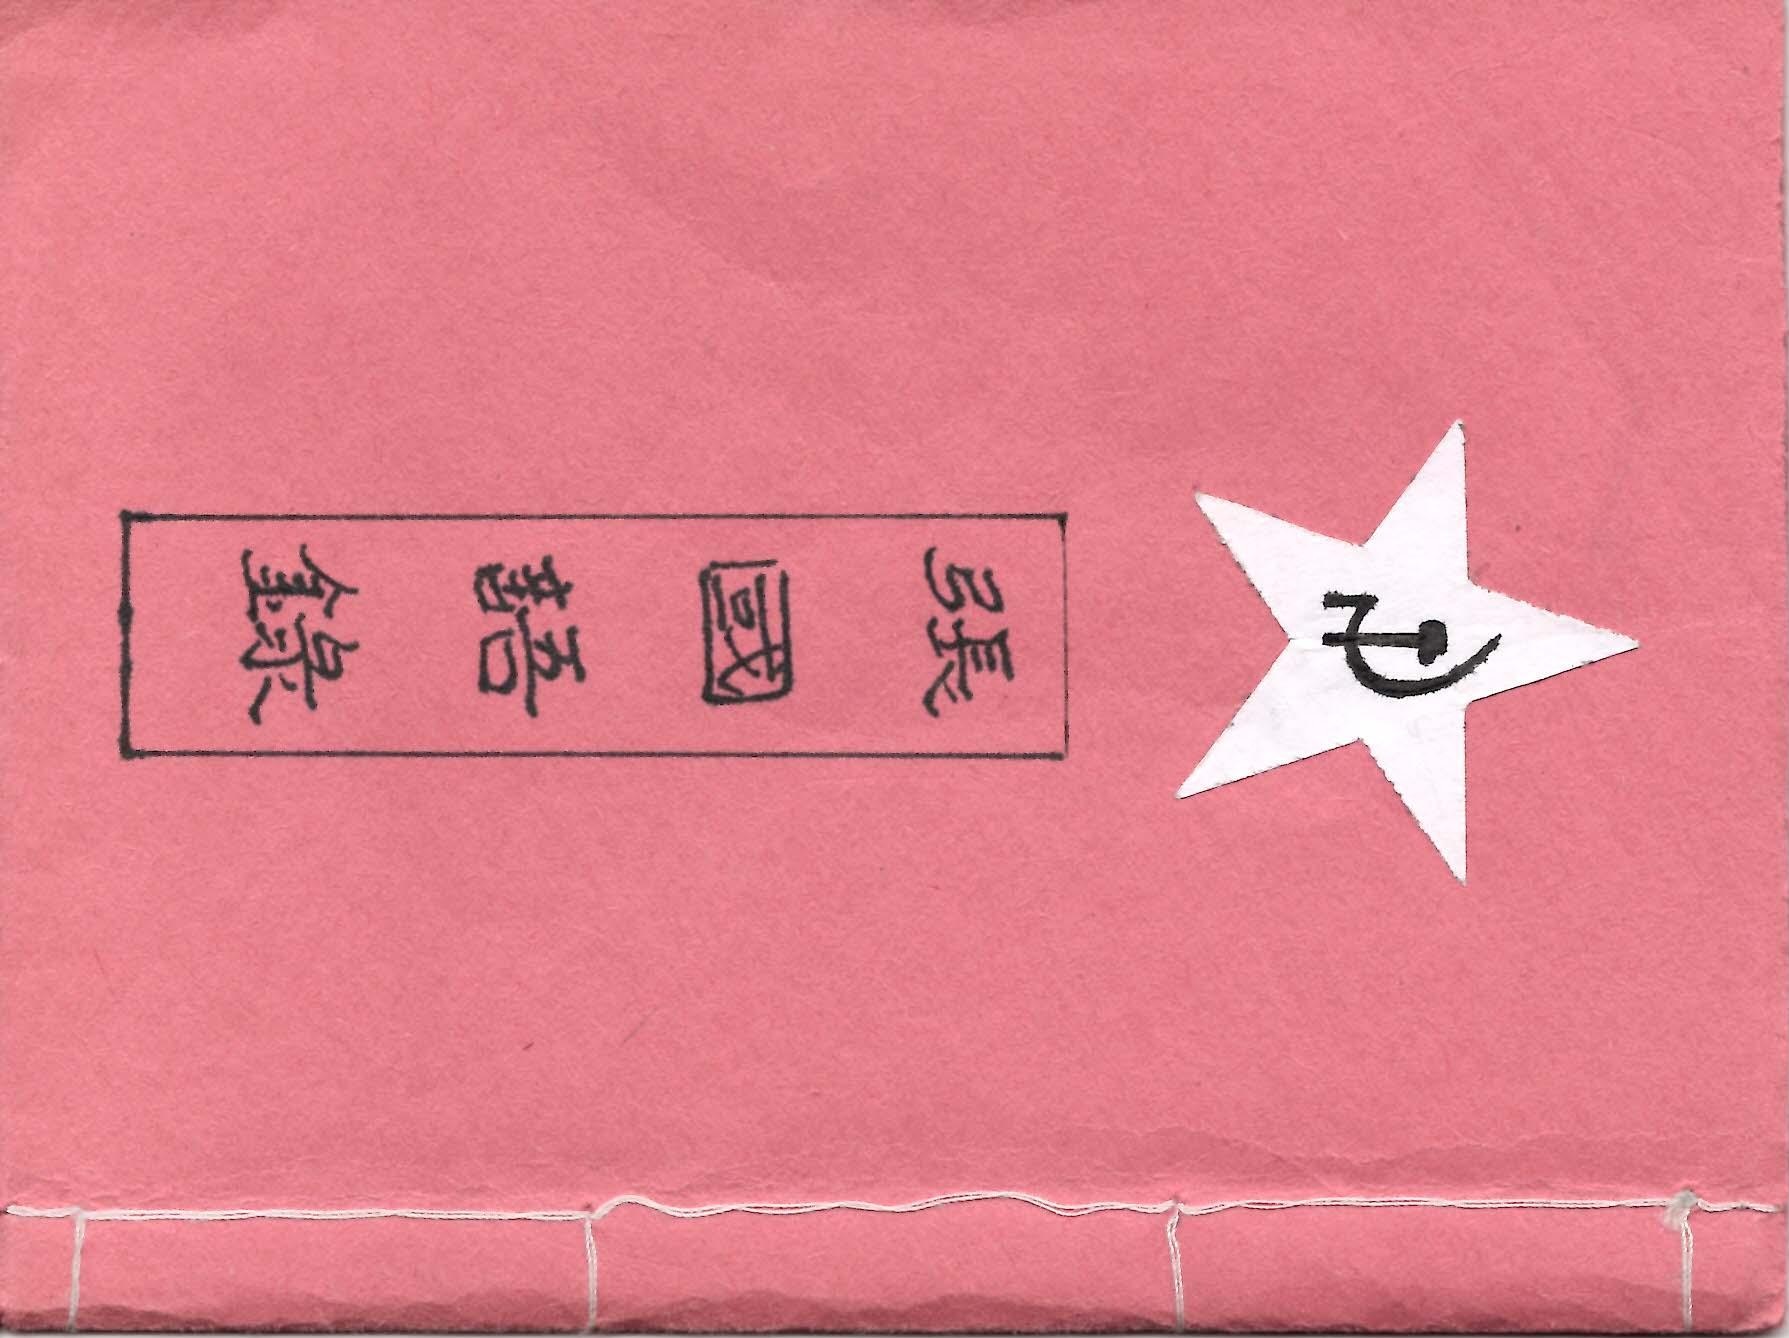 張國語錄